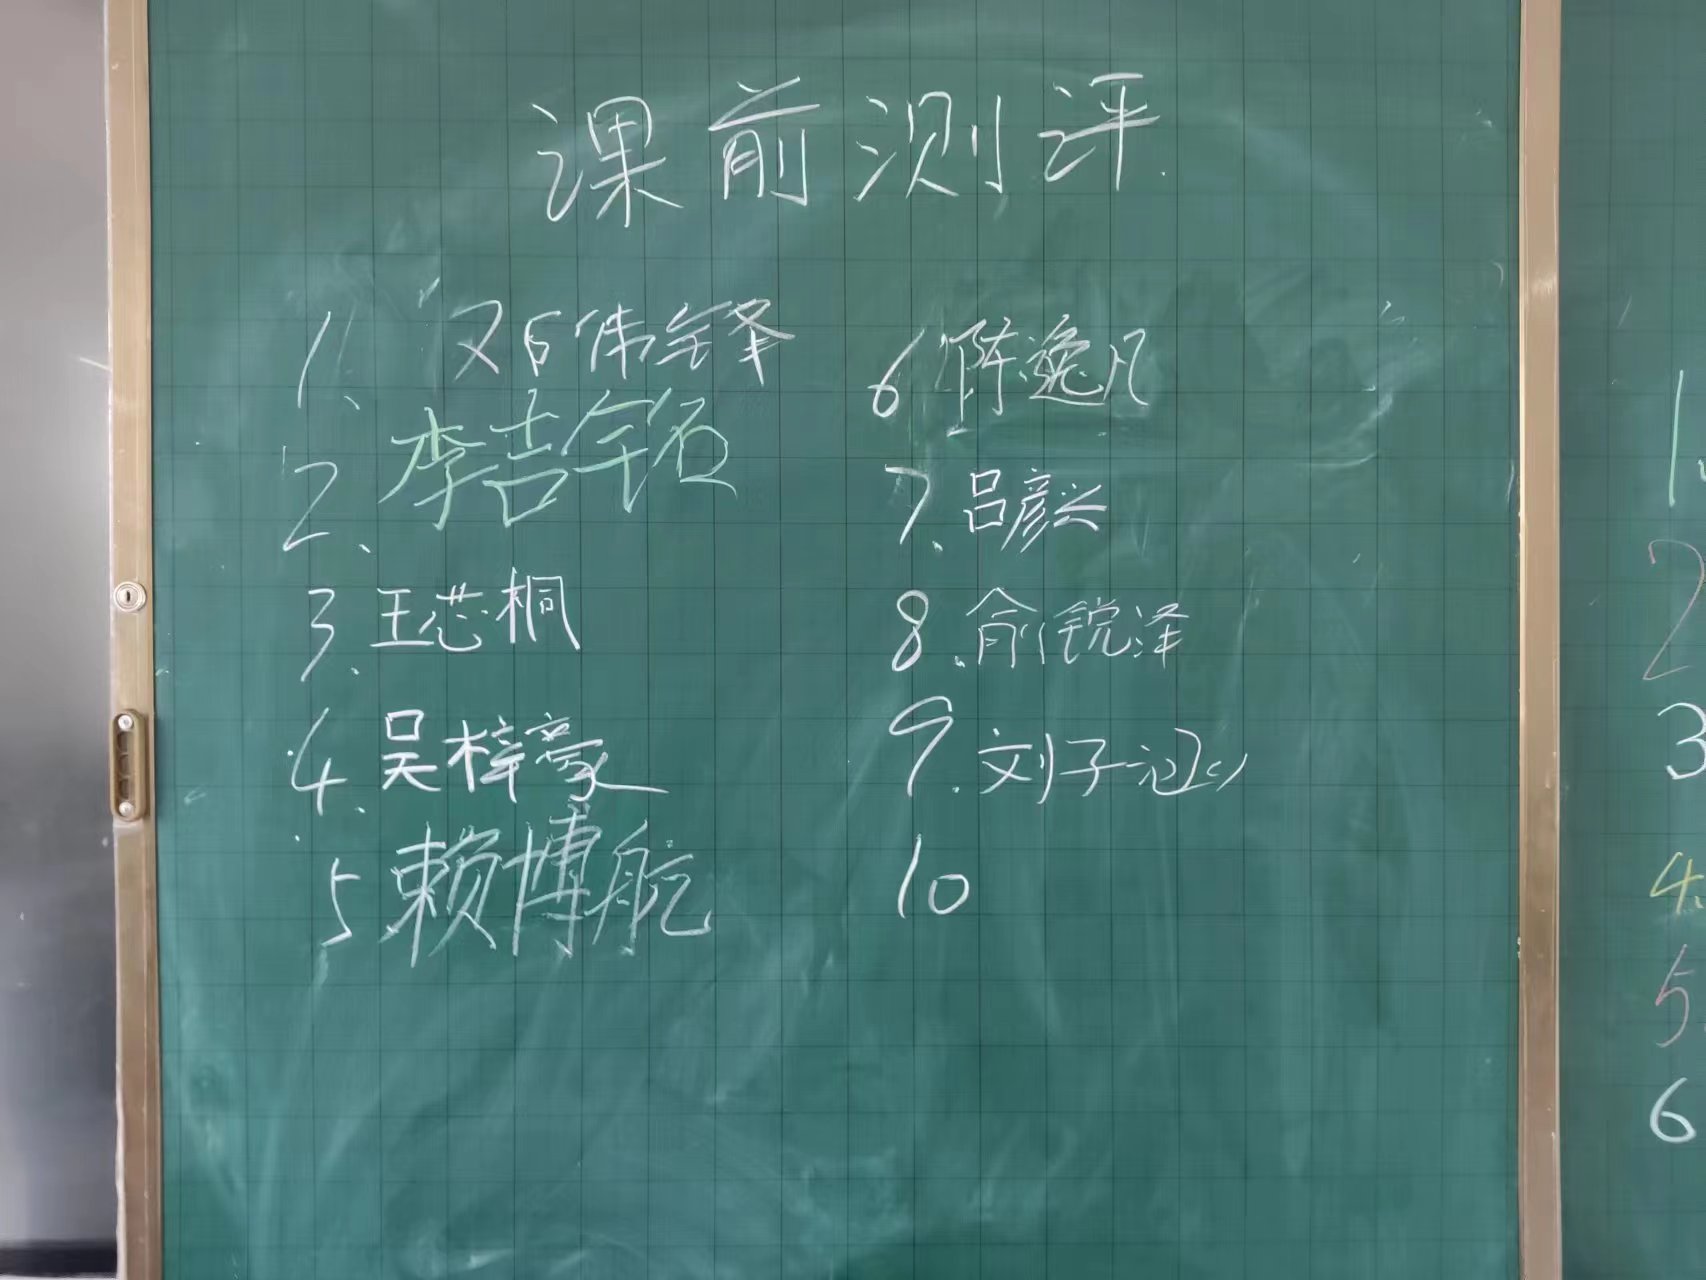 课前测评
1、邓伟锋
2、李吉铭
3、王芯桐
4、吴梓豪
5 赖博航
6 陈逸凡
7、吕彦兴
8、俞锐泽
9. 刘子涵
10
1、
2
3
4、
5
6